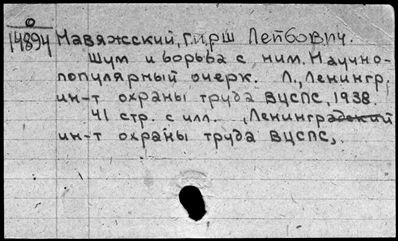 0
14894 Навяжсский, Гирш Лейбович.
Шум и борьба с ним. Научно-
популярный очерк. Л., Ленингр.
ин-т охраны труда ВЦСПС, 1938.
41 стр. с илл. (Ленинградский
ин-т охраны труда ВЦСПС).